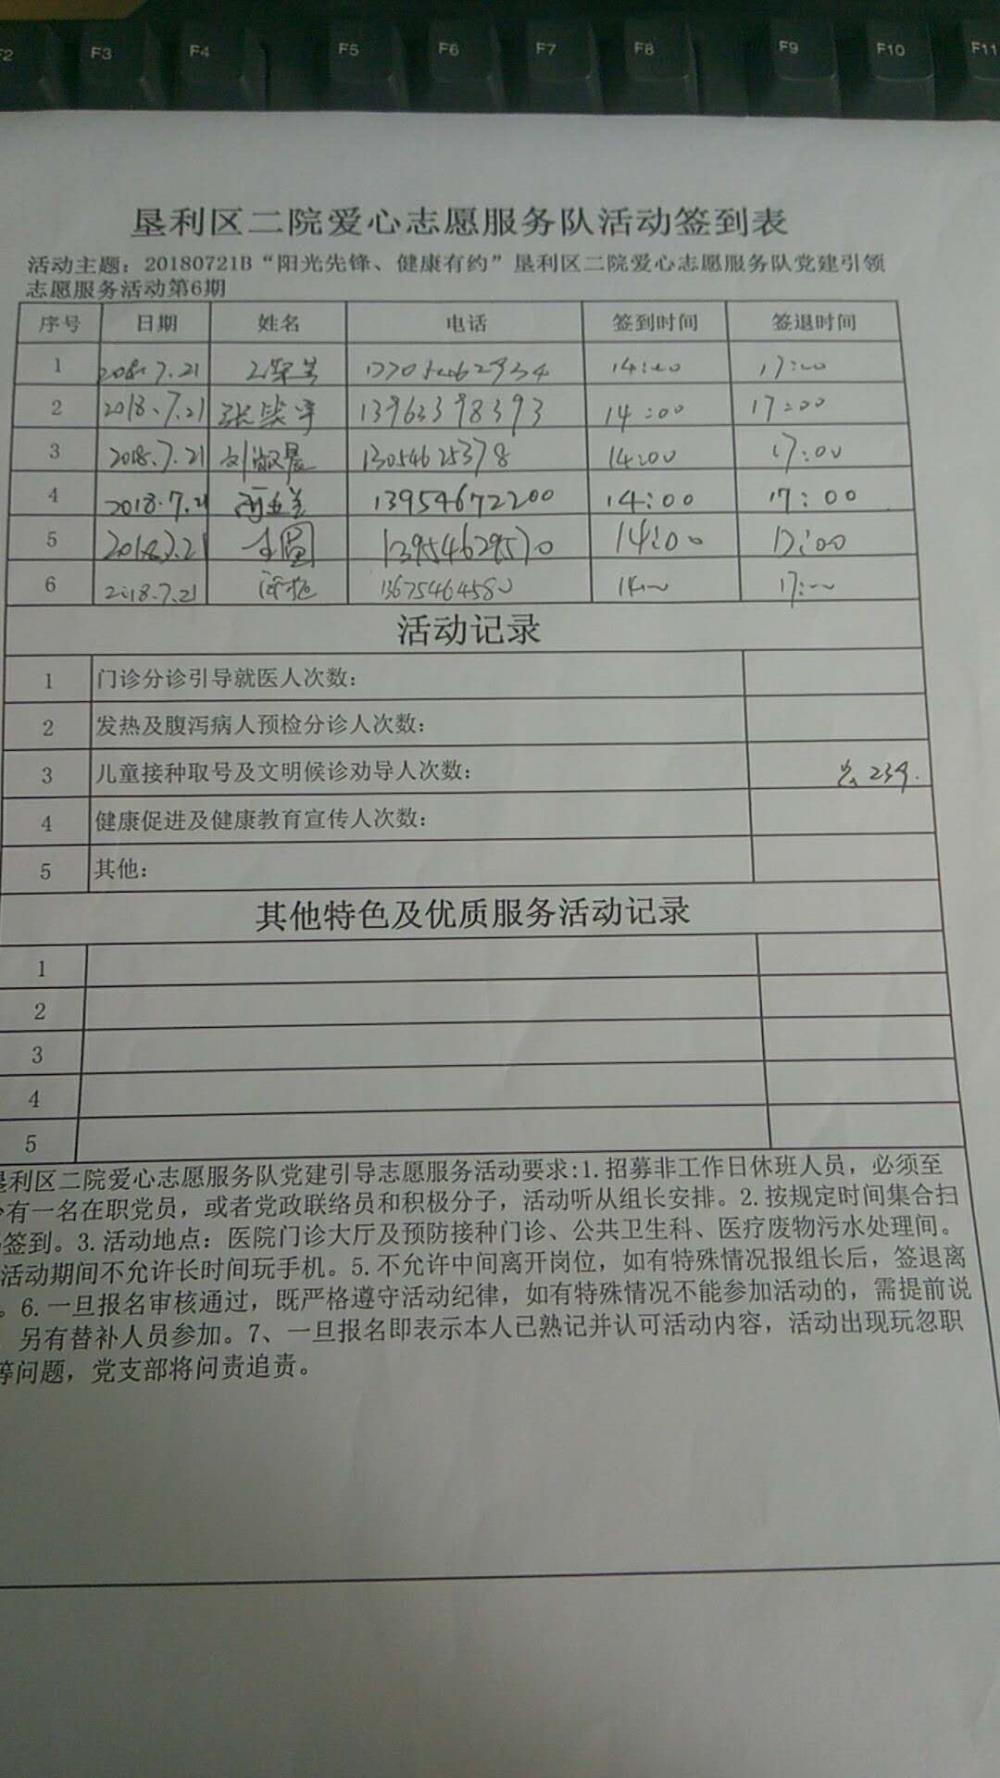 F2 F3 F4 F5 F6 F7 F8 F9 F10 F11
垦利区二院爱心志愿服务队活动签到表
活动主题：20180721B“阳光先锋、健康有约”垦利区二院爱心志愿服务队党建引领
志愿服务活动第6期
序号 日期 姓名 电话 签到时间 签退时间
1 2018.7.21 14:00 17:00
2 2018.7.21 13963398393 14:00 17:00
3 2018.7.21 刘淑晨 13054625378 14:00 17:00
4 2018.7.21 13954672200 14:00 17:00
5 2018.7.21 13954629570 14:00 17:00
6 2018.7.21 13675464580 14:00 17:00
活动记录
1 门诊分诊引导就医人次数：
2 发热及腹泻病人预检分诊人次数：
3 儿童接种取号及文明候诊劝导人次数： 共23个.
4 健康促进及健康教育宣传人次数：
5 其他：
其他特色及优质服务活动记录
1
2
3
4
5
垦利区二院爱心志愿服务队党建引导志愿服务活动要求:1.招募非工作日休班人员，必须至
少有一名在职党员，或者党政联络员和积极分子，活动听从组长安排。2.按规定时间集合扫
签到。3.活动地点：医院门诊大厅及预防接种门诊、公共卫生科、医疗废物污水处理间。
活动期间不允许长时间玩手机。5.不允许中间离开岗位，如有特殊情况报组长后，签退离
。6.一旦报名审核通过，既严格遵守活动纪律，如有特殊情况不能参加活动的，需提前说
另有替补人员参加。7、一旦报名即表示本人已熟记并认可活动内容，活动出现玩忽职
等问题，党支部将问责追责。